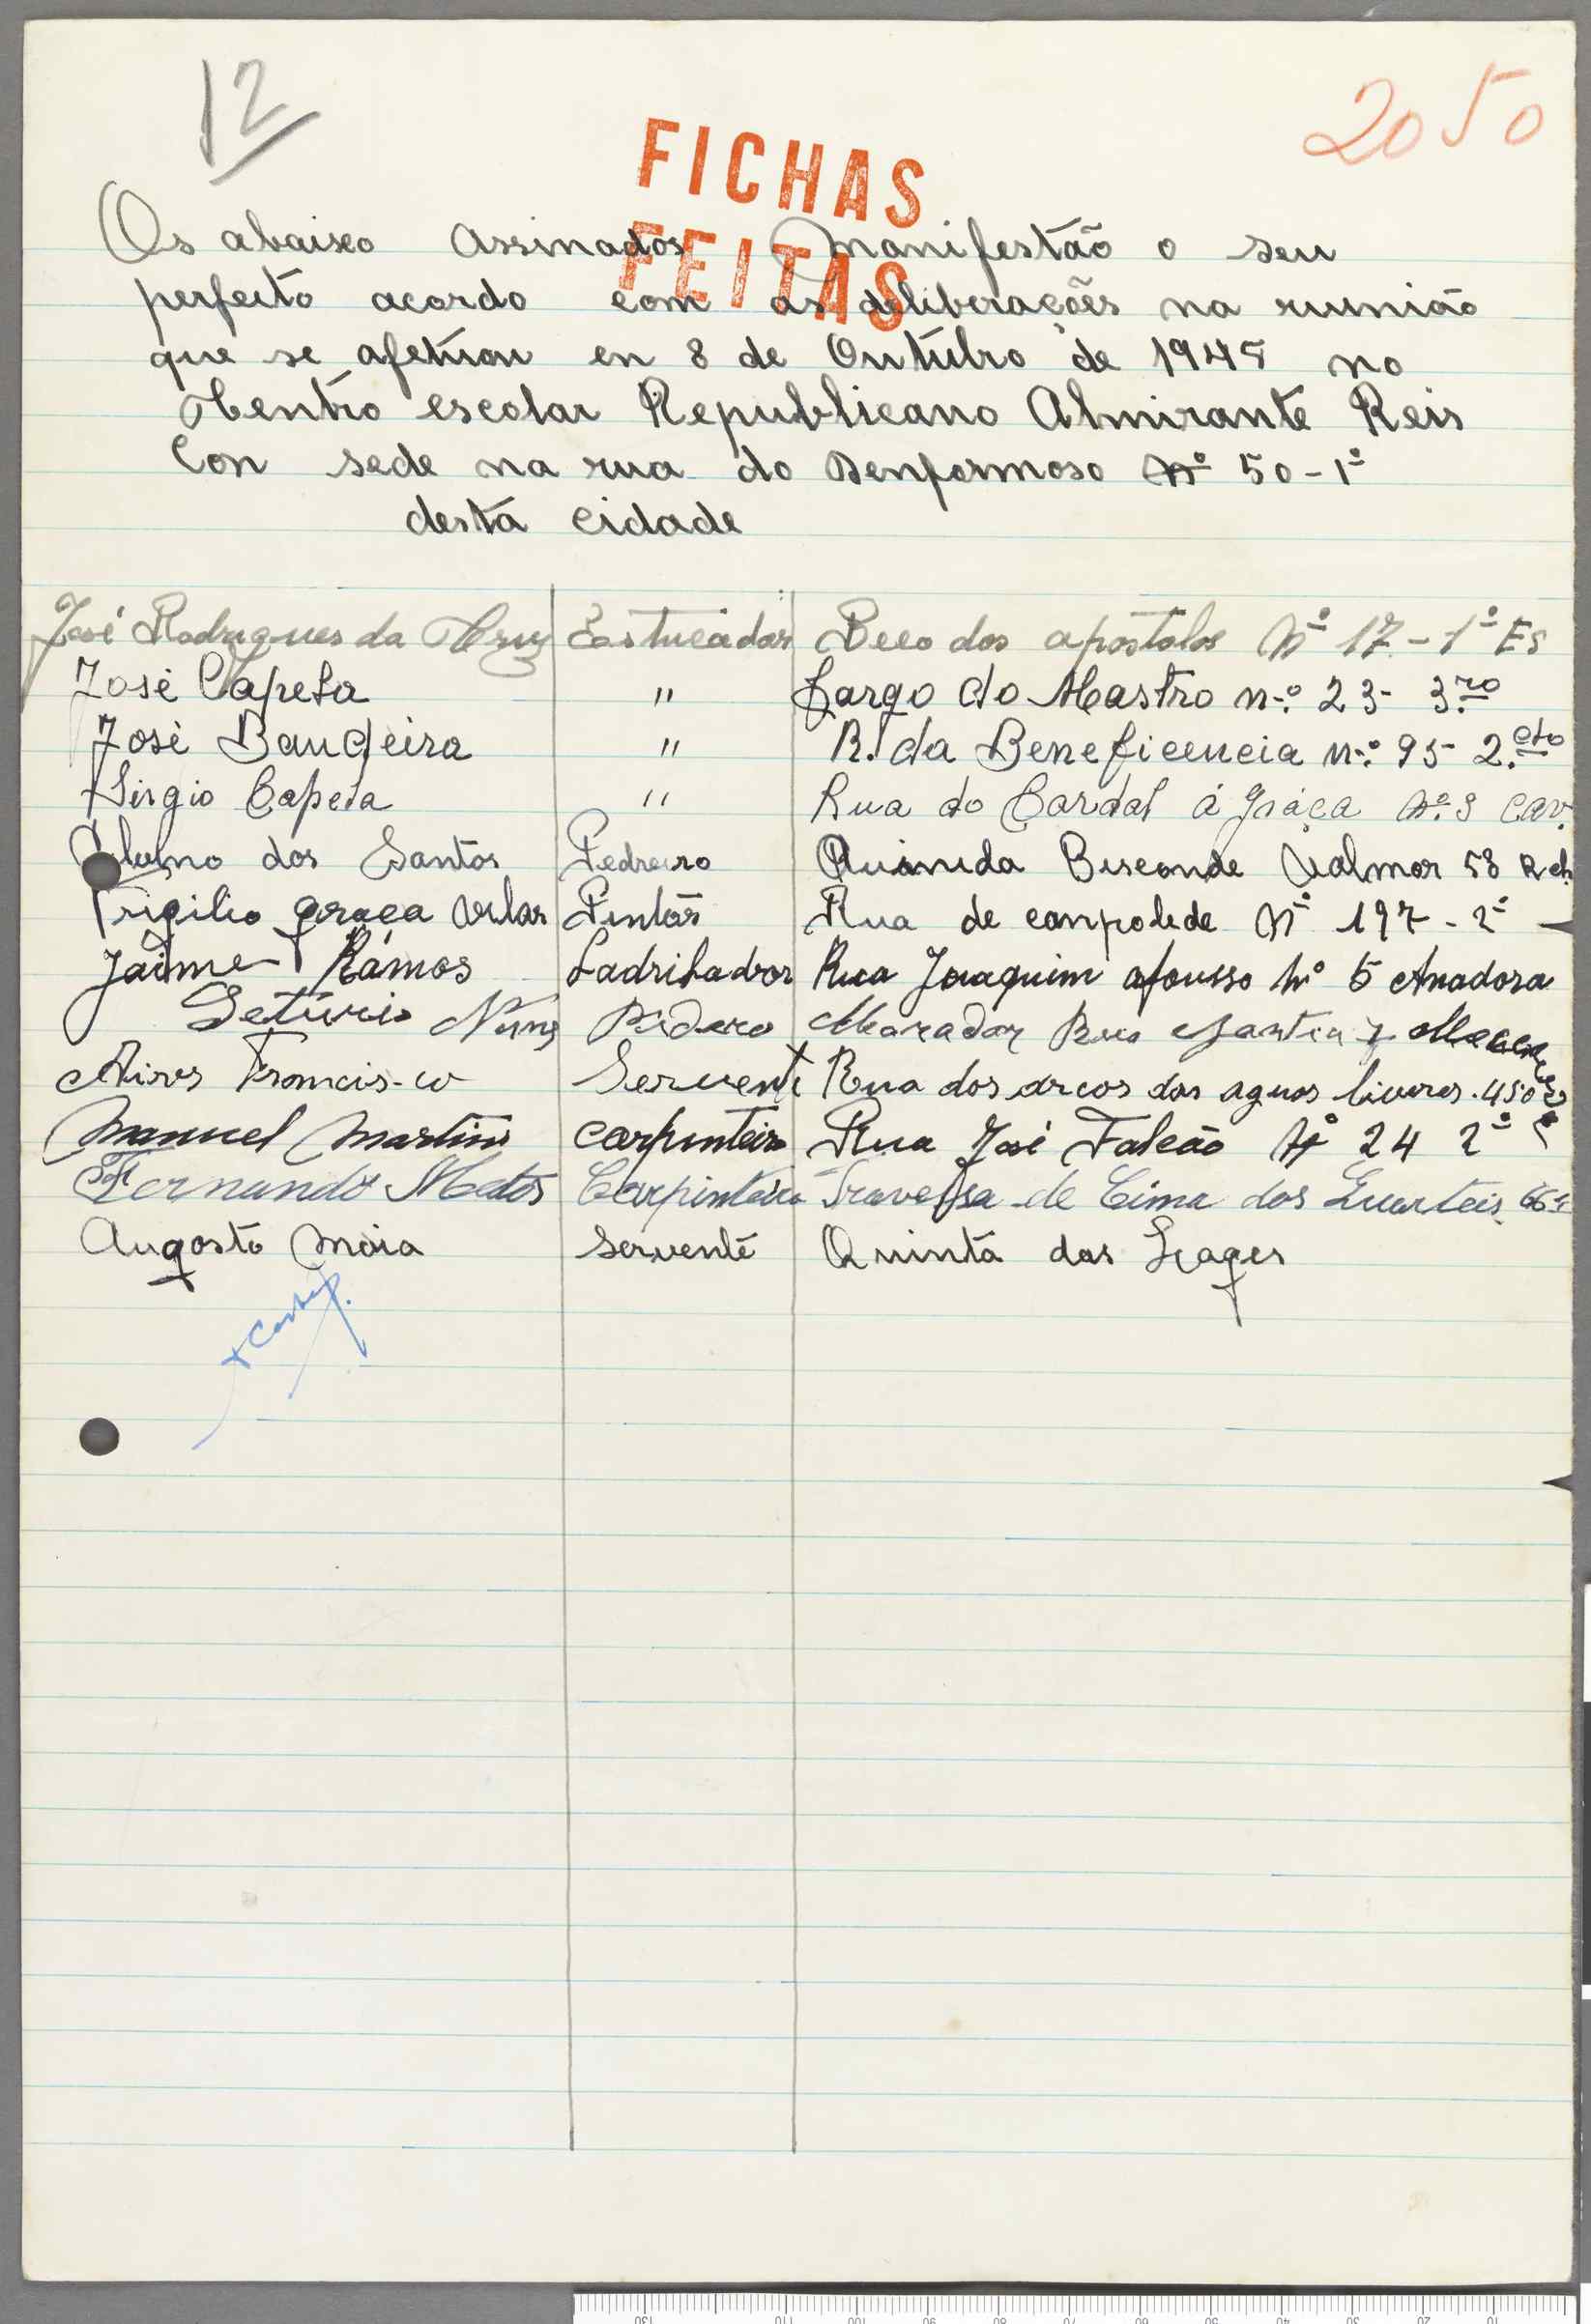 12
2050
FICHAS
FEITAS
Os abaixo Assinados Manifestão o seu
perfeito acordo com as deliberações na runião
que se afetuou en 8 de Outubro de 1945 no
Centro escolar Republicano Almirante Reis
Con sede na rua do Benformoso Nº 50-1º
desta cidade
José Rodrigues da Cruz Estucador Beco dos apostolos Nº 17-1º Es
José Capela " Largo do Mastro n.º 23- 3.ro
José Bandeira " R. da Beneficencia n.º 95- 2.
Sirgio Capela " Rua do Cardal á Graça nº. 9 cav.
dos Santos Pedreiro Bisconde Valmor 58
graça Pintôr Rua de Nº 197-2º
Jaime Rámos Ladrilhador Rua Joaquim afonsso Nº 5 Amadora
Nunes Morador Rua
Aires Francis-co Servente Rua dos arcos das aguas livres.
Manuel Martins carpinteiro Rua José Falcão Nº 24 2º
Fernando Matos Carpinteiro Travessa de Cima dos Quarteis
Augosto Maia Servente Quinta das Lages